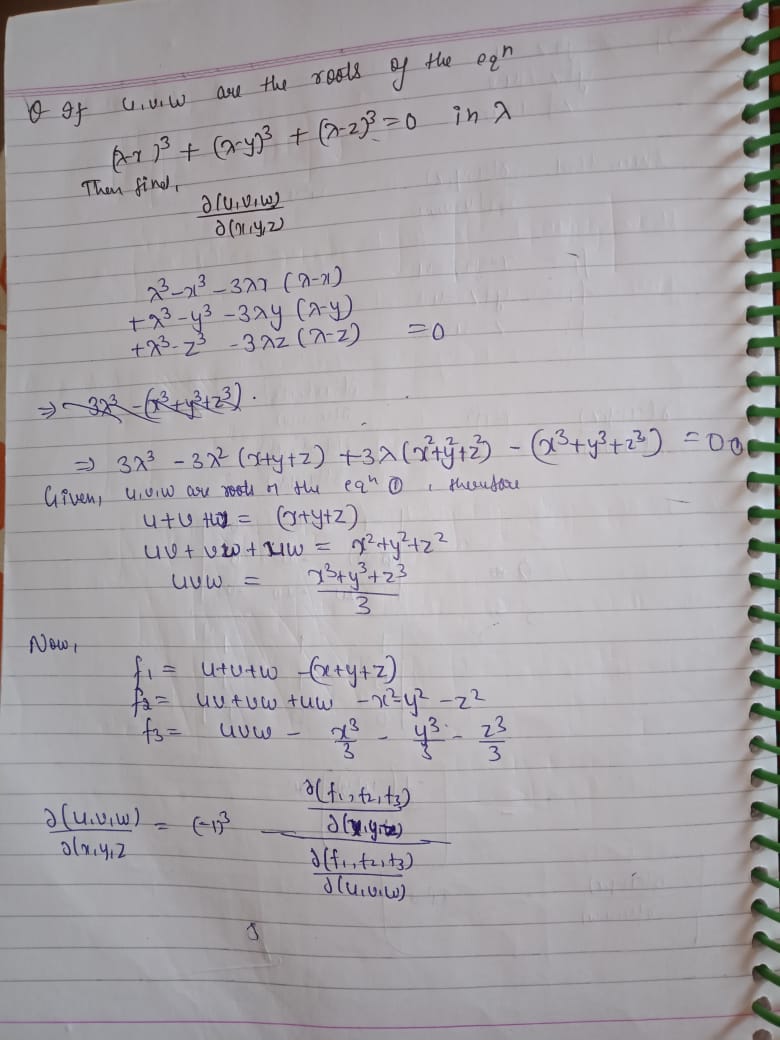 Q If u,v,w are the roots of the eqn
(λ-x)³ + (λ-y)³ + (λ-z)³ = 0 in λ
Then find,
∂(u,v,w)
∂(x,y,z)
λ³-x³-3λx (λ-x)
+λ³-y³-3λy (λ-y)
+λ³-z³-3λz (λ-z) =0
⇒ 3λ³-(x³+y³+z³).
⇒ 3λ³ - 3λ² (x+y+z) +3λ(x²+y²+z²) - (x³+y³+z³) = 0 ①
Given, u,v,w are roots of the eqn ①, therefore
u+v+w = (x+y+z)
uv+vw+uw = x²+y²+z²
uvw = x³+y³+z³
3
Now,
f₁ = u+v+w -(x+y+z)
f₂ = uv+vw+uw -x²-y²-z²
f₃ = uvw - x³/3 - y³/3 - z³/3
∂(f₁,f₂,f₃)
∂(u,v,w) = (-1)³ ∂(x,y,z)
∂(x,y,z ∂(f₁,f₂,f₃)
∂(u,v,w)